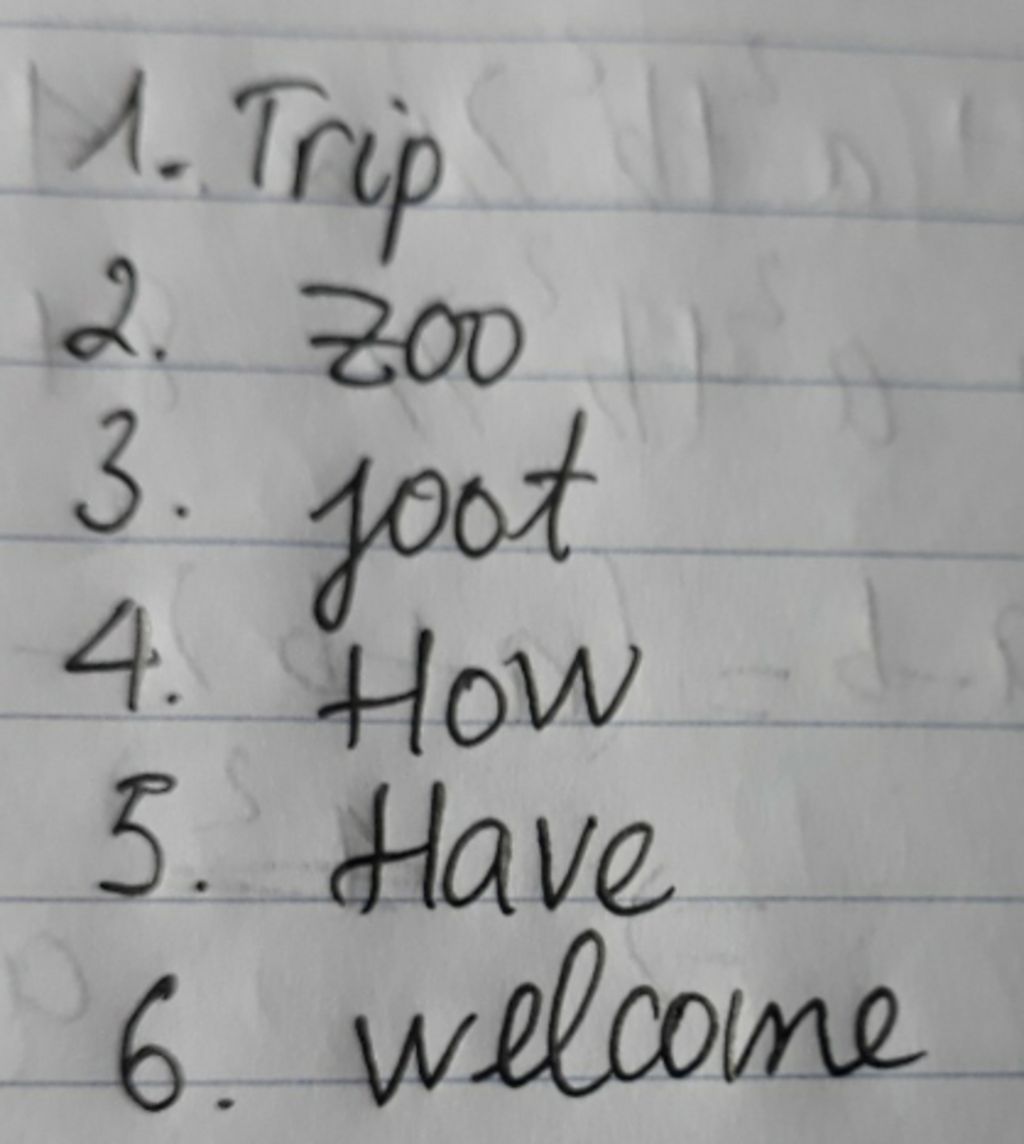 1. Trip
2. Zoo
3. joot
4. How
5. Have
6. welcome